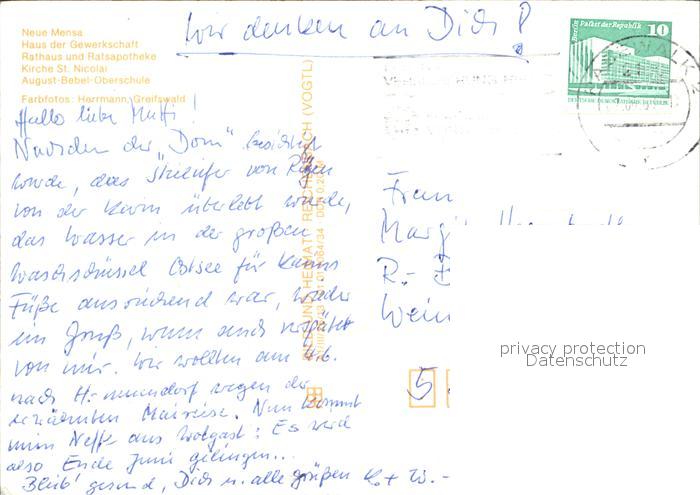 Wir denken an Dich!
Neue Mensa
Haus der Gewerkschaft
Rathaus und Ratsapotheke
Kirche St. Nicolai
August-Bebel-Oberschule
Farbfotos: Herrmann, Greifswald
Berlin Palast der Republik
10
DEUTSCHE DEMOKRATISCHE REPUBLIK
Hallo liebe Mutti!
Nachdem der "Dom" besichtigt
wurde, das Steilufer von Rügen
von der Karin überlebt wurde,
das Wasser in der großen
Waschschüssel Ostsee für Karins
Füße ausreichend war, wieder
ein Gruß, wenn auch verspätet
von mir. Wir wollten am 4.6.
nach wegen der
erwähnten Maireise. Nun kommt
mein Neffe aus Wolgast: Es wird
also Ende Juni gelingen...
Bleib' gesund, Dich u. alle grüßen
BILD UND HEIMAT REICHENBACH (VOGTL)
Frau
R.-
Wein
5
privacy protection
Datenschutz